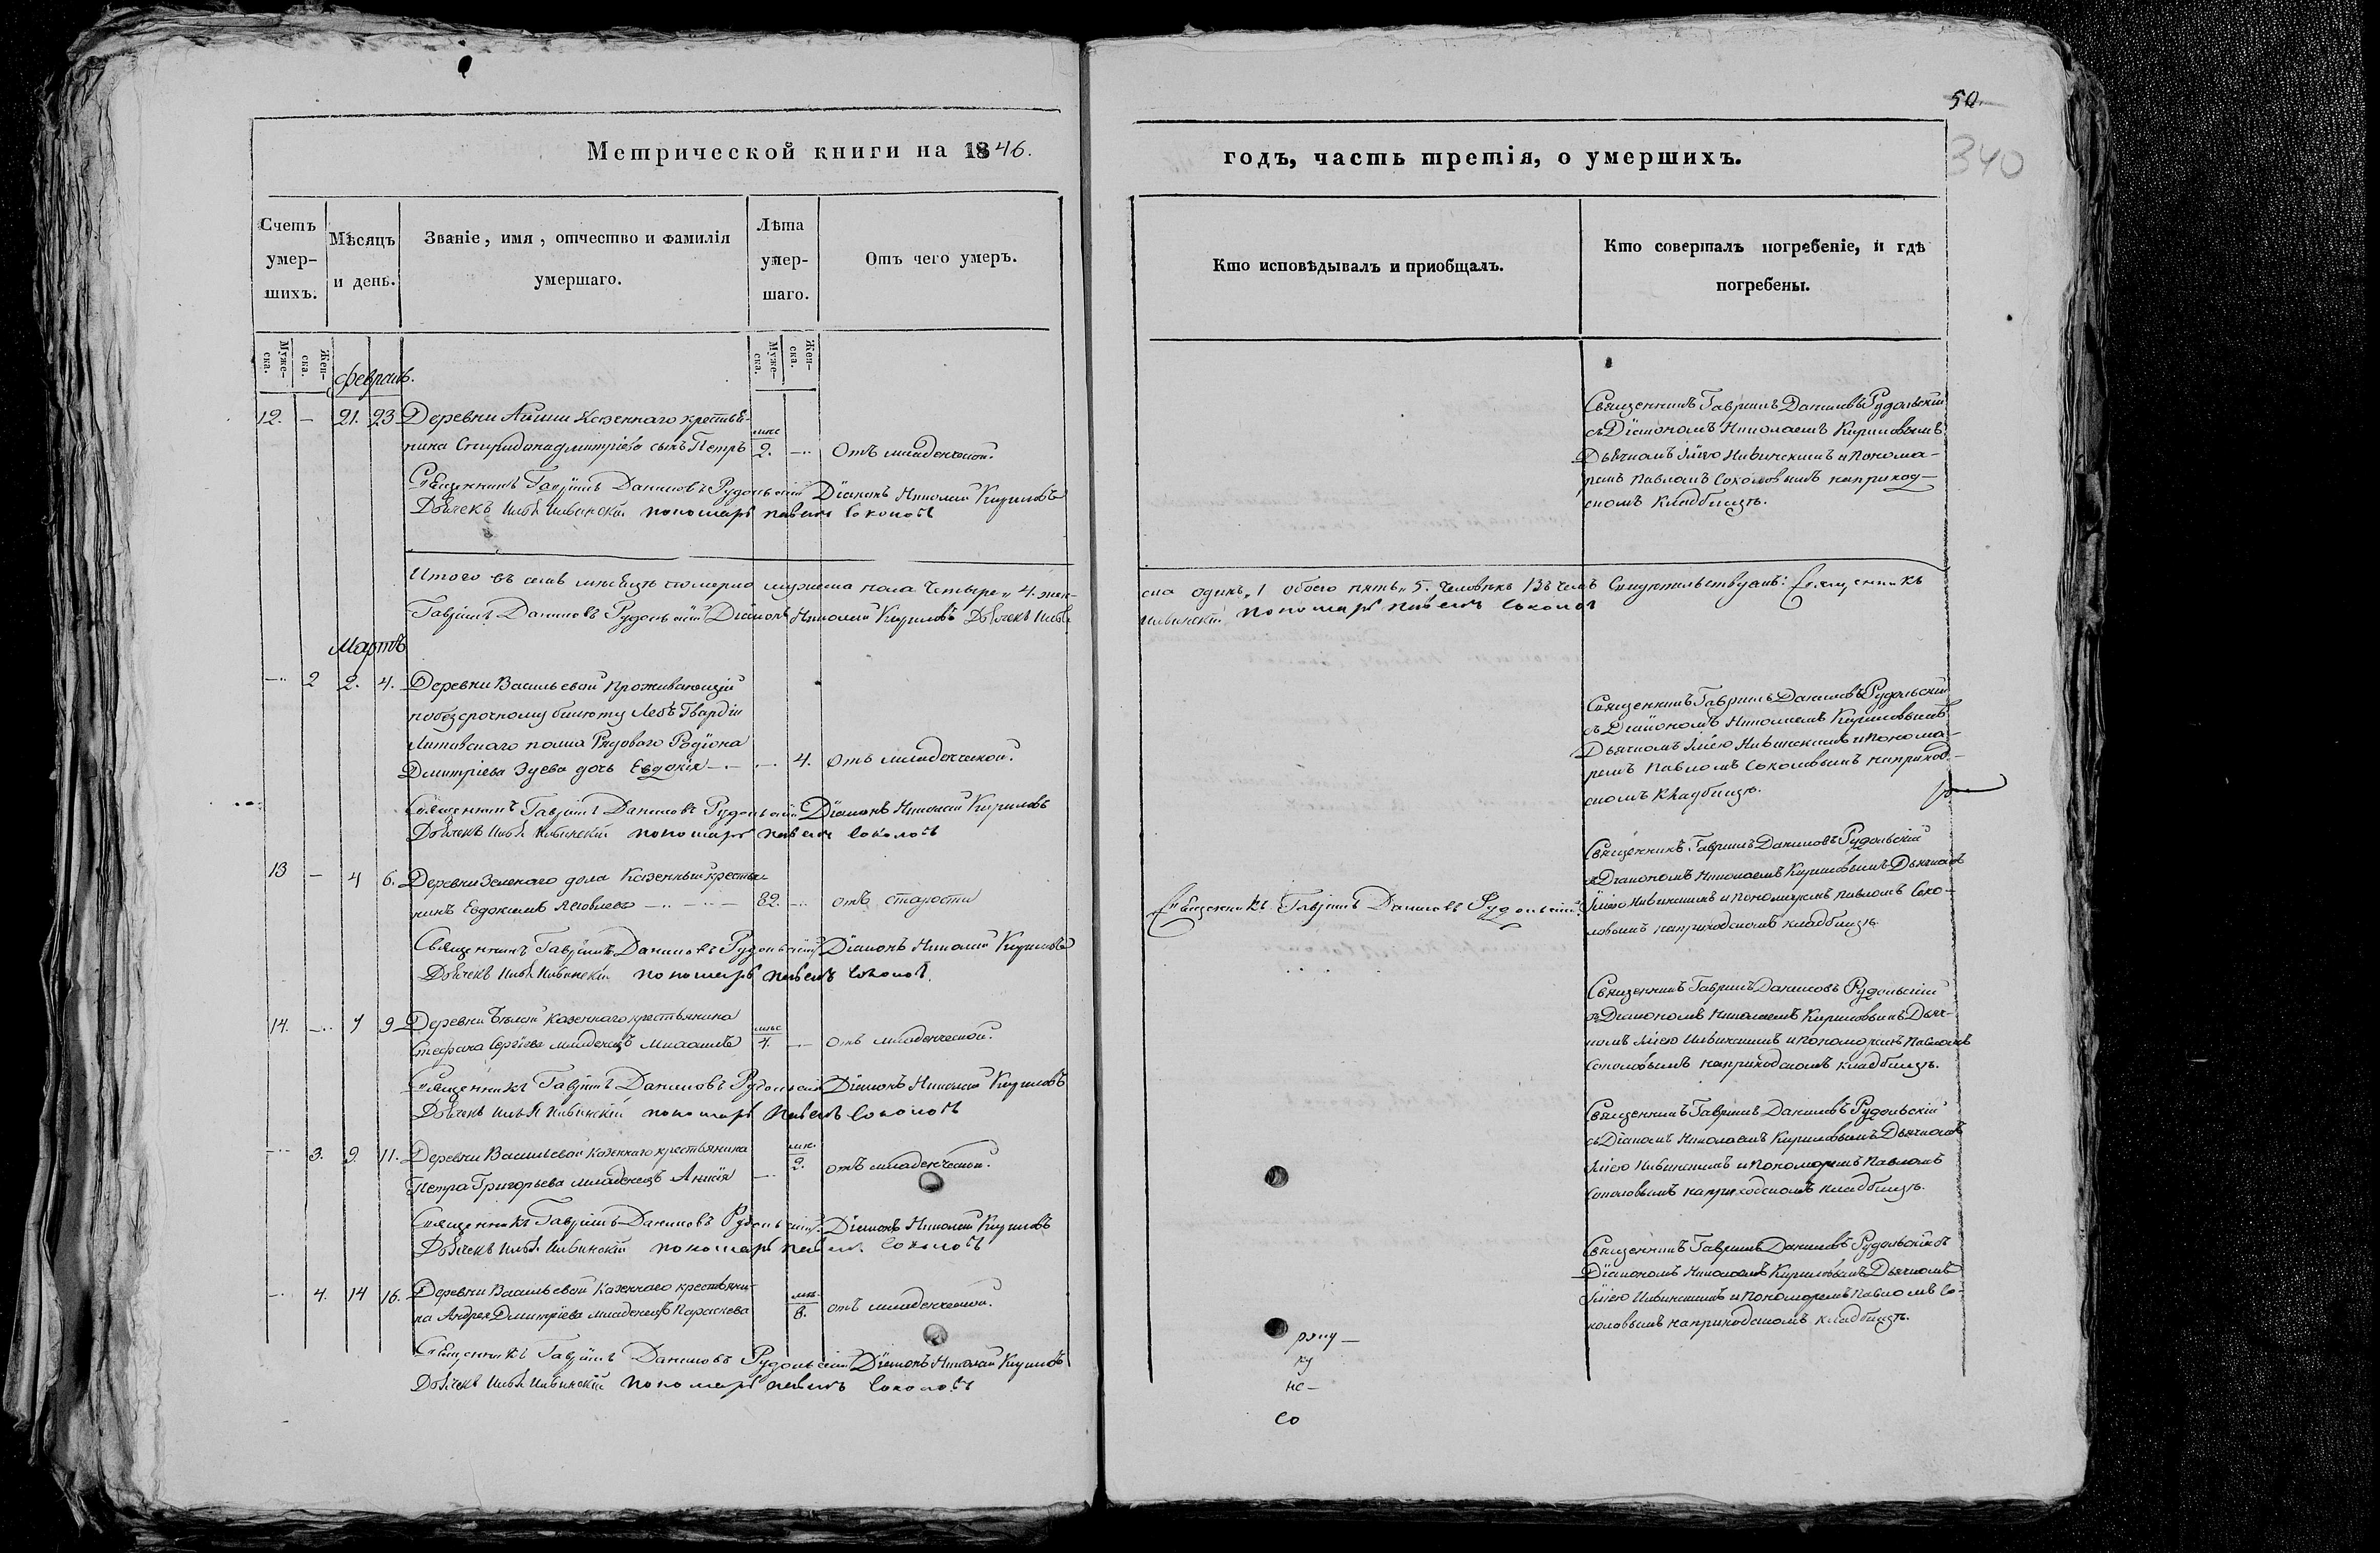 50.
340
Метрической книги на 1846.
годъ, часть третія, о умершихъ.
Счетъ умер-шихъ.
Мѣсяцъ и день.
Званіе, имя, отчество и фамилія умершаго.
Лѣта умер-шаго.
Отъ чего умеръ.
Кто исповѣдывалъ и пріобщалъ.
Кто совершалъ погребеніе, и гдѣ погребены.
Муже-ска.
Жен-ска.
Муже-ска.
Жен-ска.
февраль.
12. — 21. 23 Деревни Айши Казеннаго крестья-
нина Спиридона Дмитріева сынъ Петръ мѣс 2. — Отъ младенческой.
Священникъ Гавріилъ Даниловъ Рудольскій Діаконъ Николай Кириловъ
Дьячекъ Илья Нивинскій пономарь павелъ Соколовъ
Священникъ Гавріилъ Даниловъ Рудольскій
съ Діакономъ Николаемъ Кириловымъ
Дьячкомъ Иліею Нивинскимъ и Понома-
ремъ Павломъ Соколовымъ наприход-
скомъ Кладбищѣ.
Итого въ семъ мѣсяцѣ померло мужеска пола Четыре „ 4. жен-
ска одинъ „ 1 обоего пять „ 5. Человѣкъ Въ чемъ Свидѣтельствуемъ: Священникъ
Гавріилъ Даниловъ Рудольскій Діаконъ Николай Кириловъ Дьячекъ Илья
Нивинскій Пономарь Павелъ Соколовъ
Мартъ
— 2 2. 4. Деревни Васильевой Проживающій
побезсрочному билету Лебъ Гвардіи
Литовскаго полка Рядоваго Родіона
Дмитріева Зуева дочь Евдокія — — 4. Отъ младенческой.
Священникъ Гавріилъ Даниловъ Рудольскій Діаконъ Николай Кириловъ
Дьячекъ Илья Нивинскій пономарь павелъ Соколовъ
Священникъ Гавріилъ Даниловъ Рудольскій
съ Діакономъ Николаемъ Кириловымъ
Дьячкомъ Иліею Нивинскимъ и Понома-
ремъ Павломъ Соколовымъ наприход-
скомъ Кладбищѣ.
13 — 4 6. Деревни Зеленаго дола Казенный крестья-
нинъ Евдокимъ Яковлевъ — 82. — отъ старости
Священникъ Гавріилъ Даниловъ Рудольскій Діаконъ Николай Кириловъ
Дьячекъ Илья Нивинскій пономарь павелъ Соколовъ.
Священникъ Гавріилъ Даниловъ Рудольскій.
Священникъ Гавріилъ Даниловъ Рудольскій
съ Діакономъ Николаемъ Кириловымъ Дьячкомъ
Иліею Нивинскимъ и пономаремъ павломъ Соко-
ловымъ наприходскомъ кладбищѣ.
14. — 7 9 Деревни Бѣлой Казеннаго крестьянина
Стефана Сергіева младенецъ Михаилъ мѣс 4. — отъ младенческой.
Священникъ Гавріилъ Даниловъ Рудольскій Діаконъ Николай Кириловъ
Дьячекъ Илья Нивинскій пономарь Павелъ Соколовъ
Священникъ Гавріилъ Даниловъ Рудольскій
съ Діакономъ Николаемъ Кириловымъ Дьяч-
комъ Иліею Нивинскимъ и пономаремъ Павломъ
Соколовымъ наприходскомъ кладбищѣ.
— 3. 9 11. Деревни Васильевой Казеннаго крестьянина
Петра Григорьева младенецъ Анисія — мѣ. 2. отъ младенческой.
Священникъ Гавріилъ Даниловъ Рудольскій. Діаконъ Николай Кириловъ
Дьячекъ Илья Нивинскій пономарь павелъ Соколовъ
Священникъ Гавріилъ Даниловъ Рудольскій
съ Діакономъ Николаемъ Кириловымъ Дьячкомъ
Иліею Нивинскимъ и Пономаремъ Павломъ
Соколовымъ наприходскомъ кладбищѣ.
— 4. 14 16. Деревни Васильевой Казеннаго крестьяни-
на Андрея Дмитріева младенецъ Параскева мѣ. 8. отъ младенческой.
Священникъ Гавріилъ Даниловъ Рудольскій Діаконъ Николай Кириловъ
Дьячекъ Илья Нивинскій Пономарь павелъ Соколовъ
Священникъ Гавріилъ Даниловъ Рудольскій съ
Діакономъ Николаемъ Кириловымъ Дьячкомъ
Иліею Нивинскимъ и Пономаремъ Павломъ Со-
коловымъ наприходскомъ кладбищѣ.
ну
не—
Со